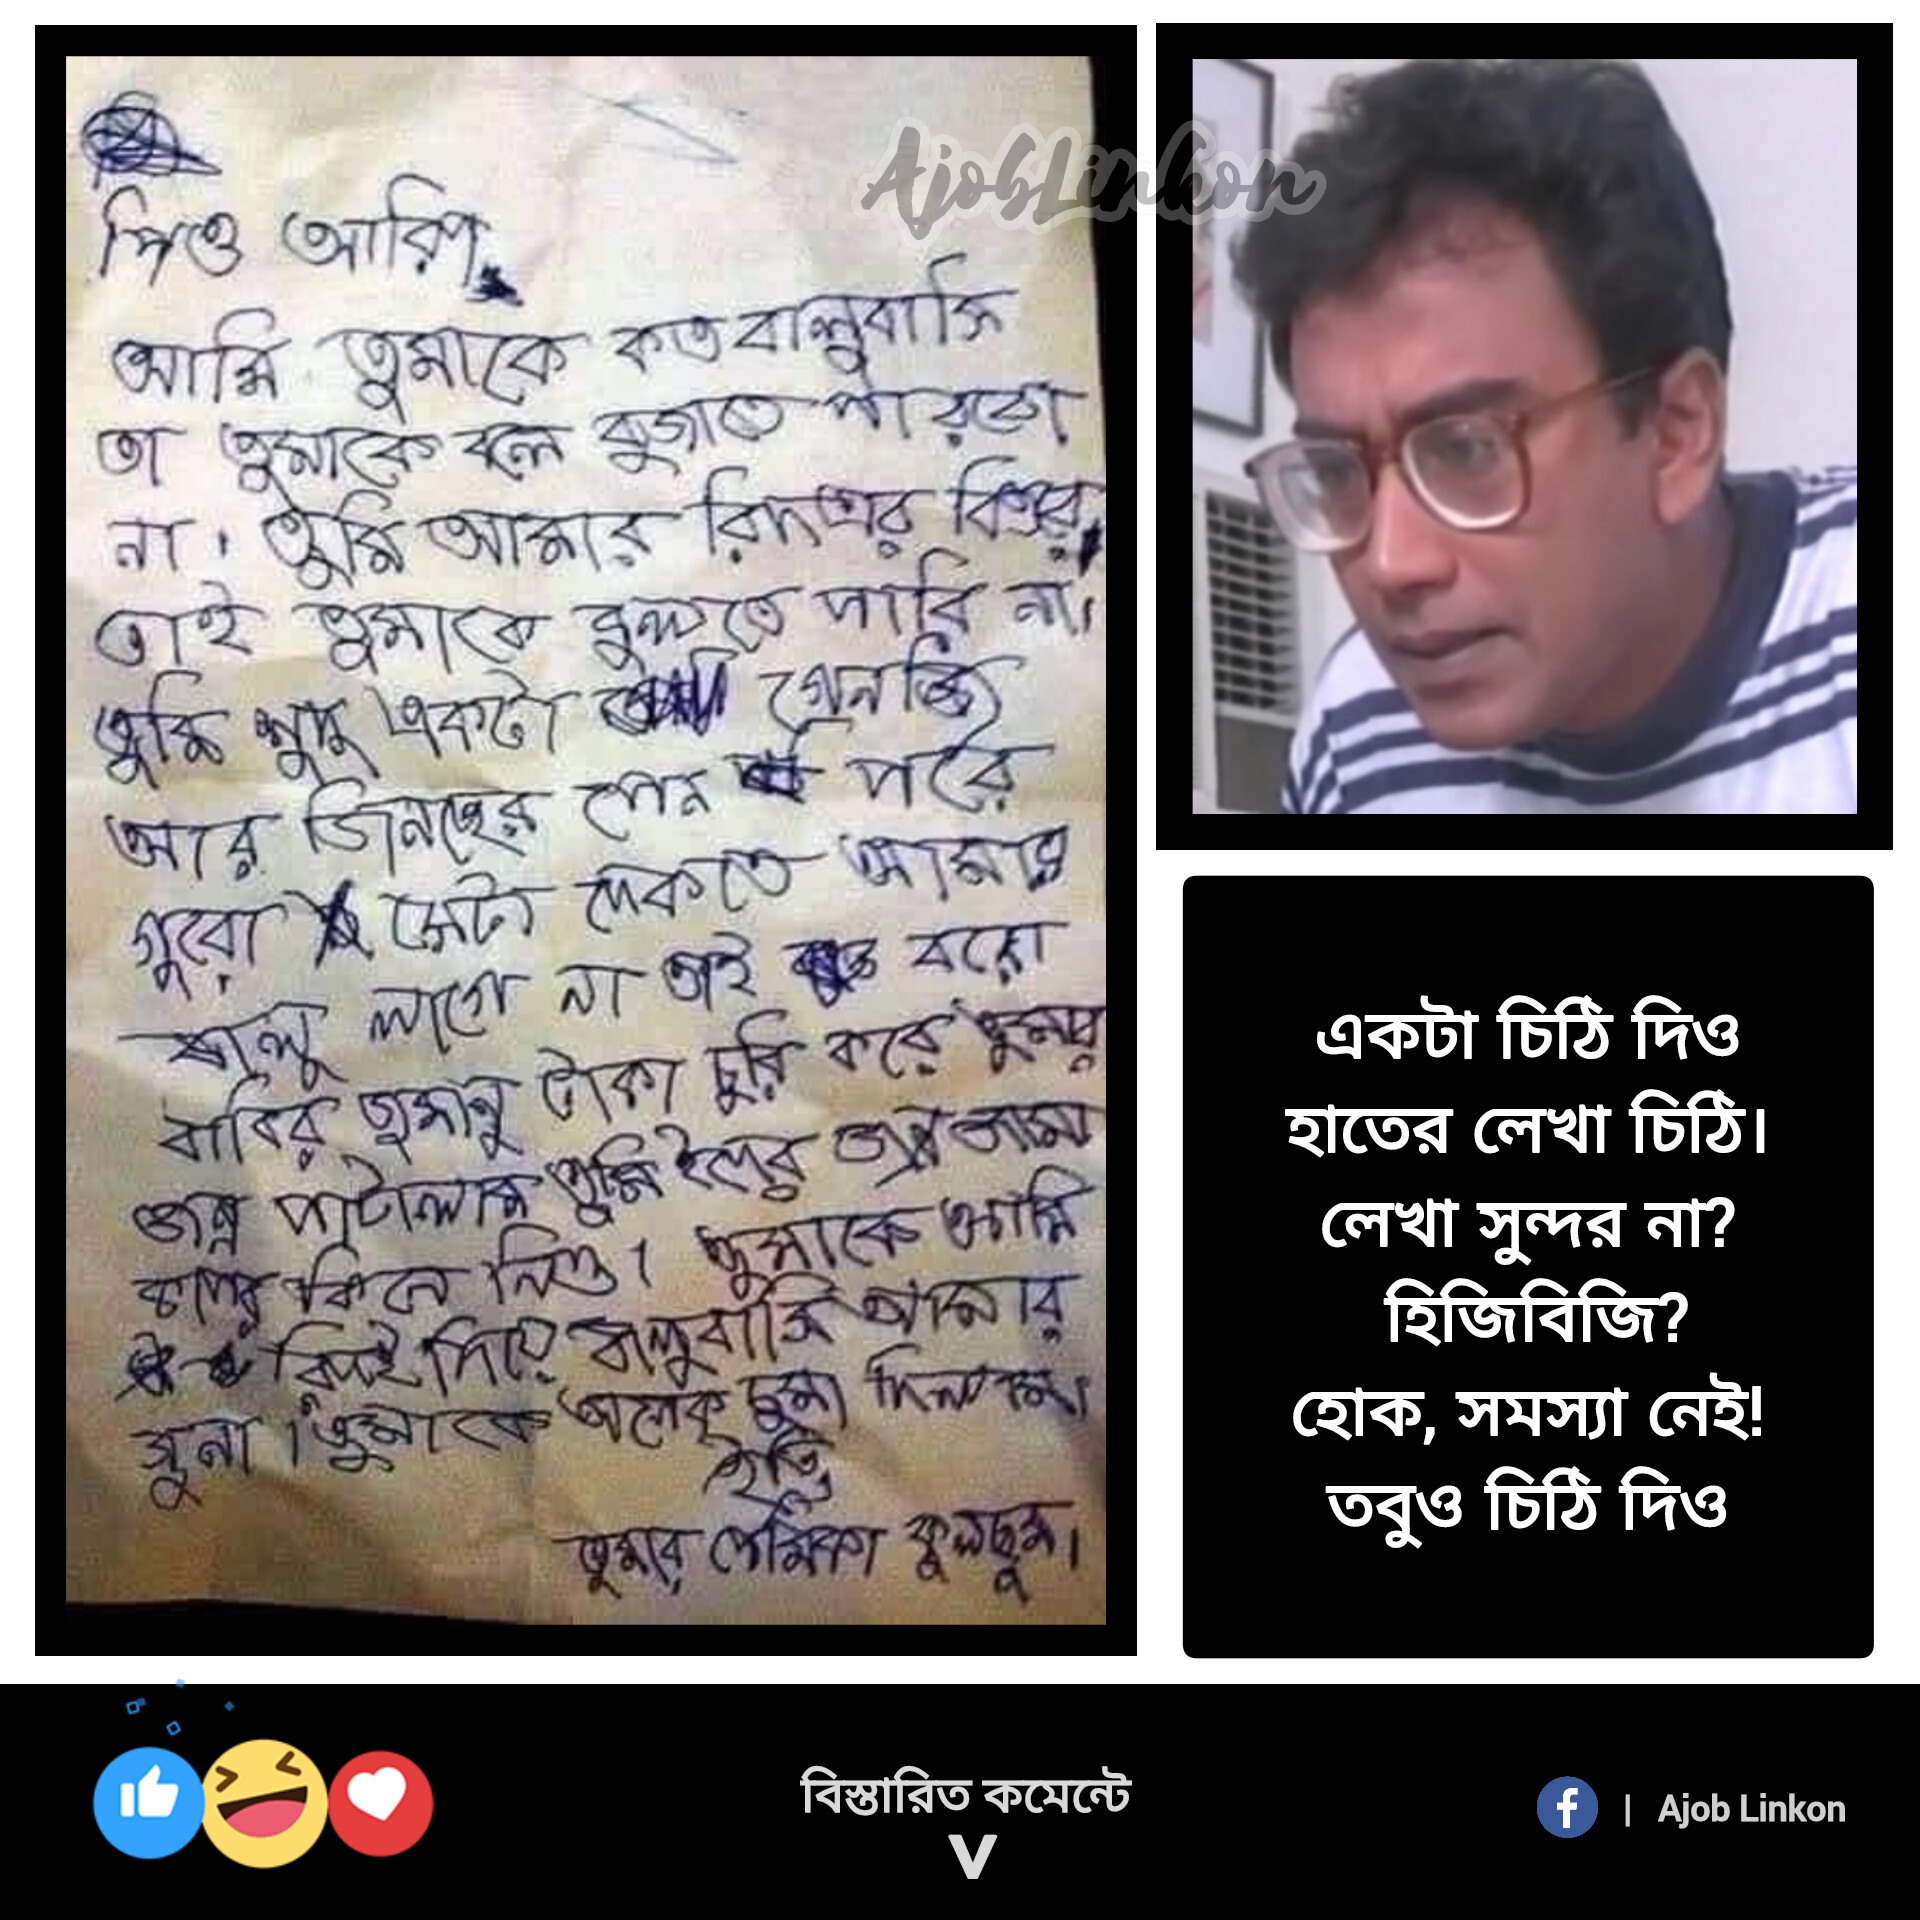 পিও আরিপ
আমি তুমাকে কত বালুবাসি
তা তুমাকে বলে বুজাতে পারবো
না। তুমি আমার রিদএর বিতর
তাই তুমাকে বুলতে পারি না।
তুমি শুদু একটা গেনজি
আর জিনছের পেন পরে
গুরো সেটা দেকতে আমার
বালু লাগে না তাই বরো
বাবির টাকা চুরি করে তুমার
জন্ন পাটালাম তুমি ইদের জন্ন জামা
কাপর কিনে নিও। তুমাকে আমি
রিদই দিয়ে বালুবাসি আমার
সুনা। তুমাকে অনেক চুমা দিলাম।
ইতি
তুমার পেমিকা কুলছুম।
AjobLinkon
একটা চিঠি দিও
হাতের লেখা চিঠি।
লেখা সুন্দর না?
হিজিবিজি?
হোক, সমস্যা নেই!
তবুও চিঠি দিও
বিস্তারিত কমেন্টে
f | Ajob Linkon